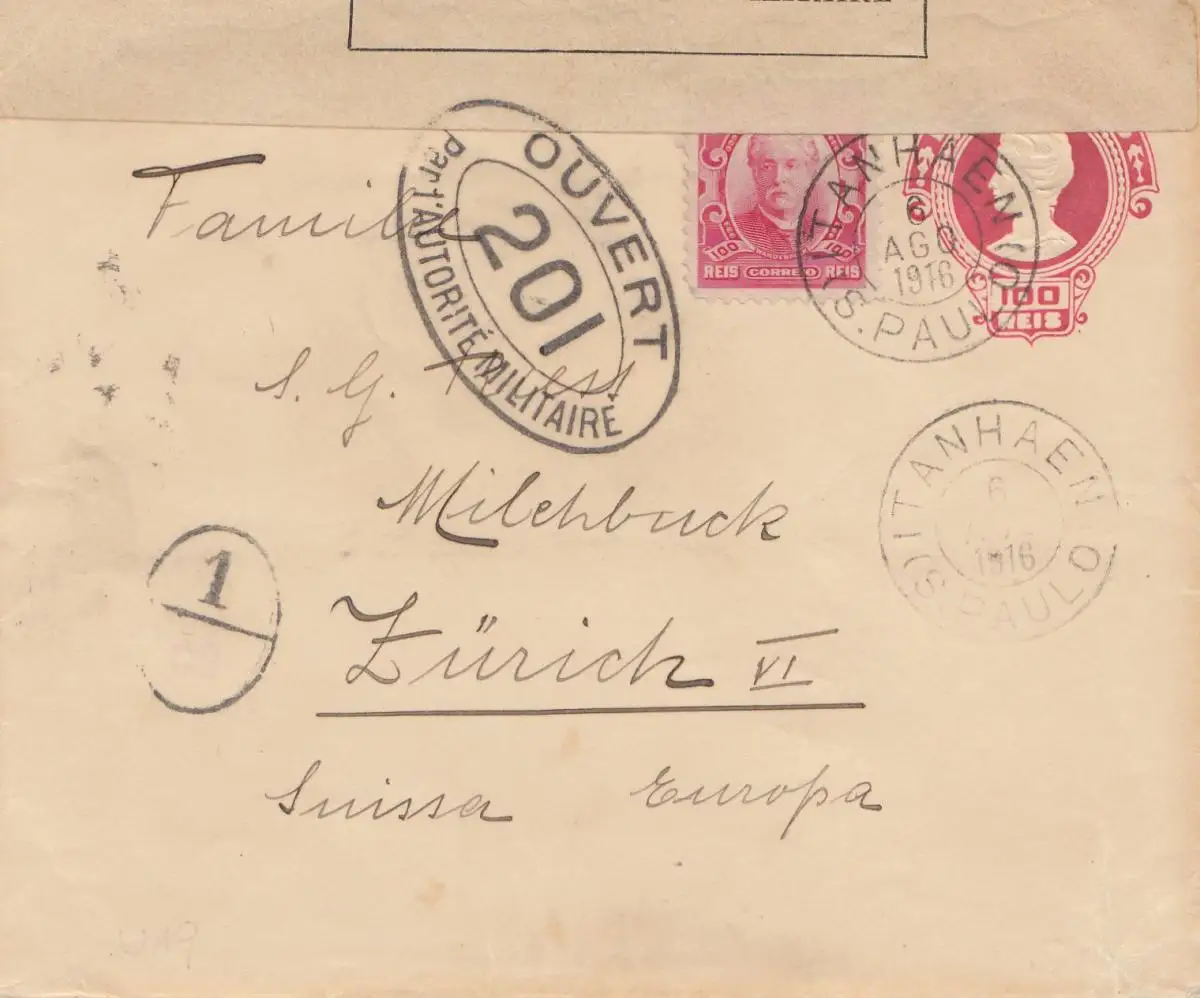 OUVERT
201
Par l'AUTORITÉ MILITAIRE
100 100
REIS CORREIO REIS
ITANHAEN
6
AGO
1916
(S. PAULO)
100
REIS
Famille
S. G.
Milchbuck
ITANHAEN
6
1916
(S. PAULO)
1
Zürich VI
Suissa Europa